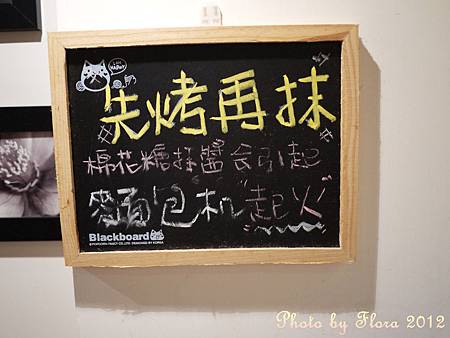 先烤再抹
棉花糖抹醬会引起
麵包机"起火"
Blackboard
Photo by Flora 2012